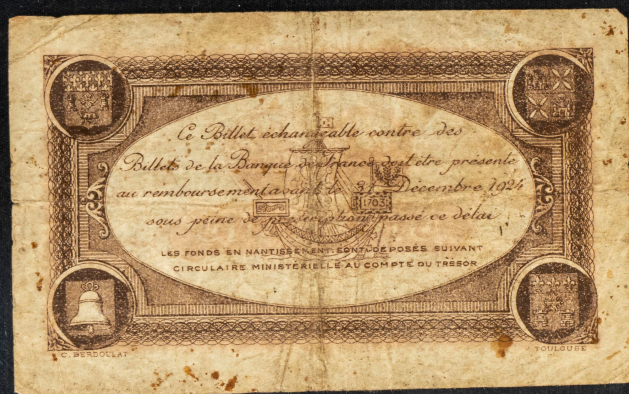 Ce Billet échangeable contre des
Billets de la Banque de France doit être présenté
au remboursement avant le 31 Décembre 1924
sous peine de prescription passé ce délai
1703
LES FONDS EN NANTISSEMENT, SONT DÉPOSÉS SUIVANT
CIRCULAIRE MINISTÉRIELLE AU COMPTE DU TRÉSOR
C. BERDOLLAT
TOULOUSE